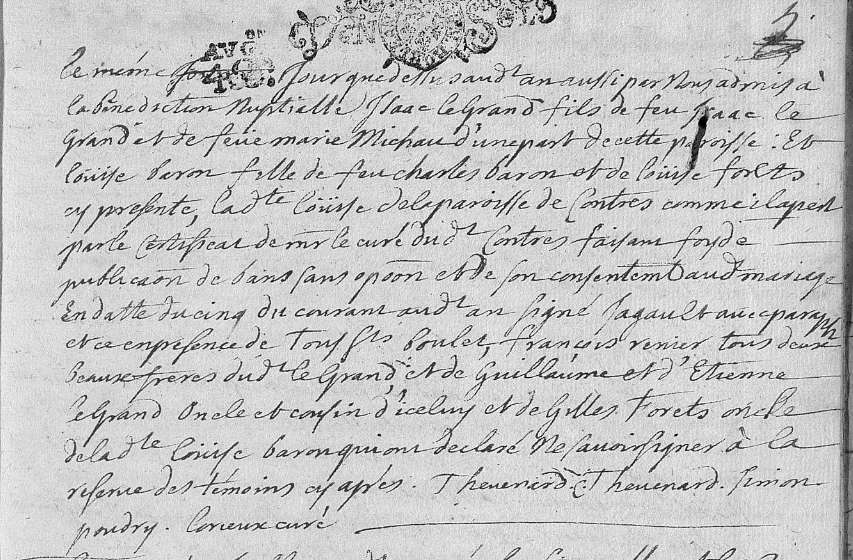 le même jour que dessus aud.t an aussi par Nous admis à
la bénédiction Nuptialle Isaac le Grand fils de feu Isaac le
Grand et de feüe marie Michau d'une part de cette paroisse : Et
loüise baron fille de feu charles baron et de loüise forets
cy présente, lad.te loüise de la paroisse de Contres comme il apert
par le Certificat de mr le curé dud.t Contres faisant foy de
publicaon de bans sans opoon et de son consentemt aud.t mariage
En datte du cinq du courant aud.t an signé Jagault avec paraphe
et ce en présence de Touss.ts boulet, françois renier tous deux
beaux-freres dud.t le Grand, et de Guillaume et d'Etienne
le Grand Oncle et cousin d'iceluy et de Gilles forets oncle
de lad.te loüise baron qui ont déclaré Ne savoir signer à la
réserve des témoins cy après. Thevenard. Thevenard. Simon
poudry. lorieux curé